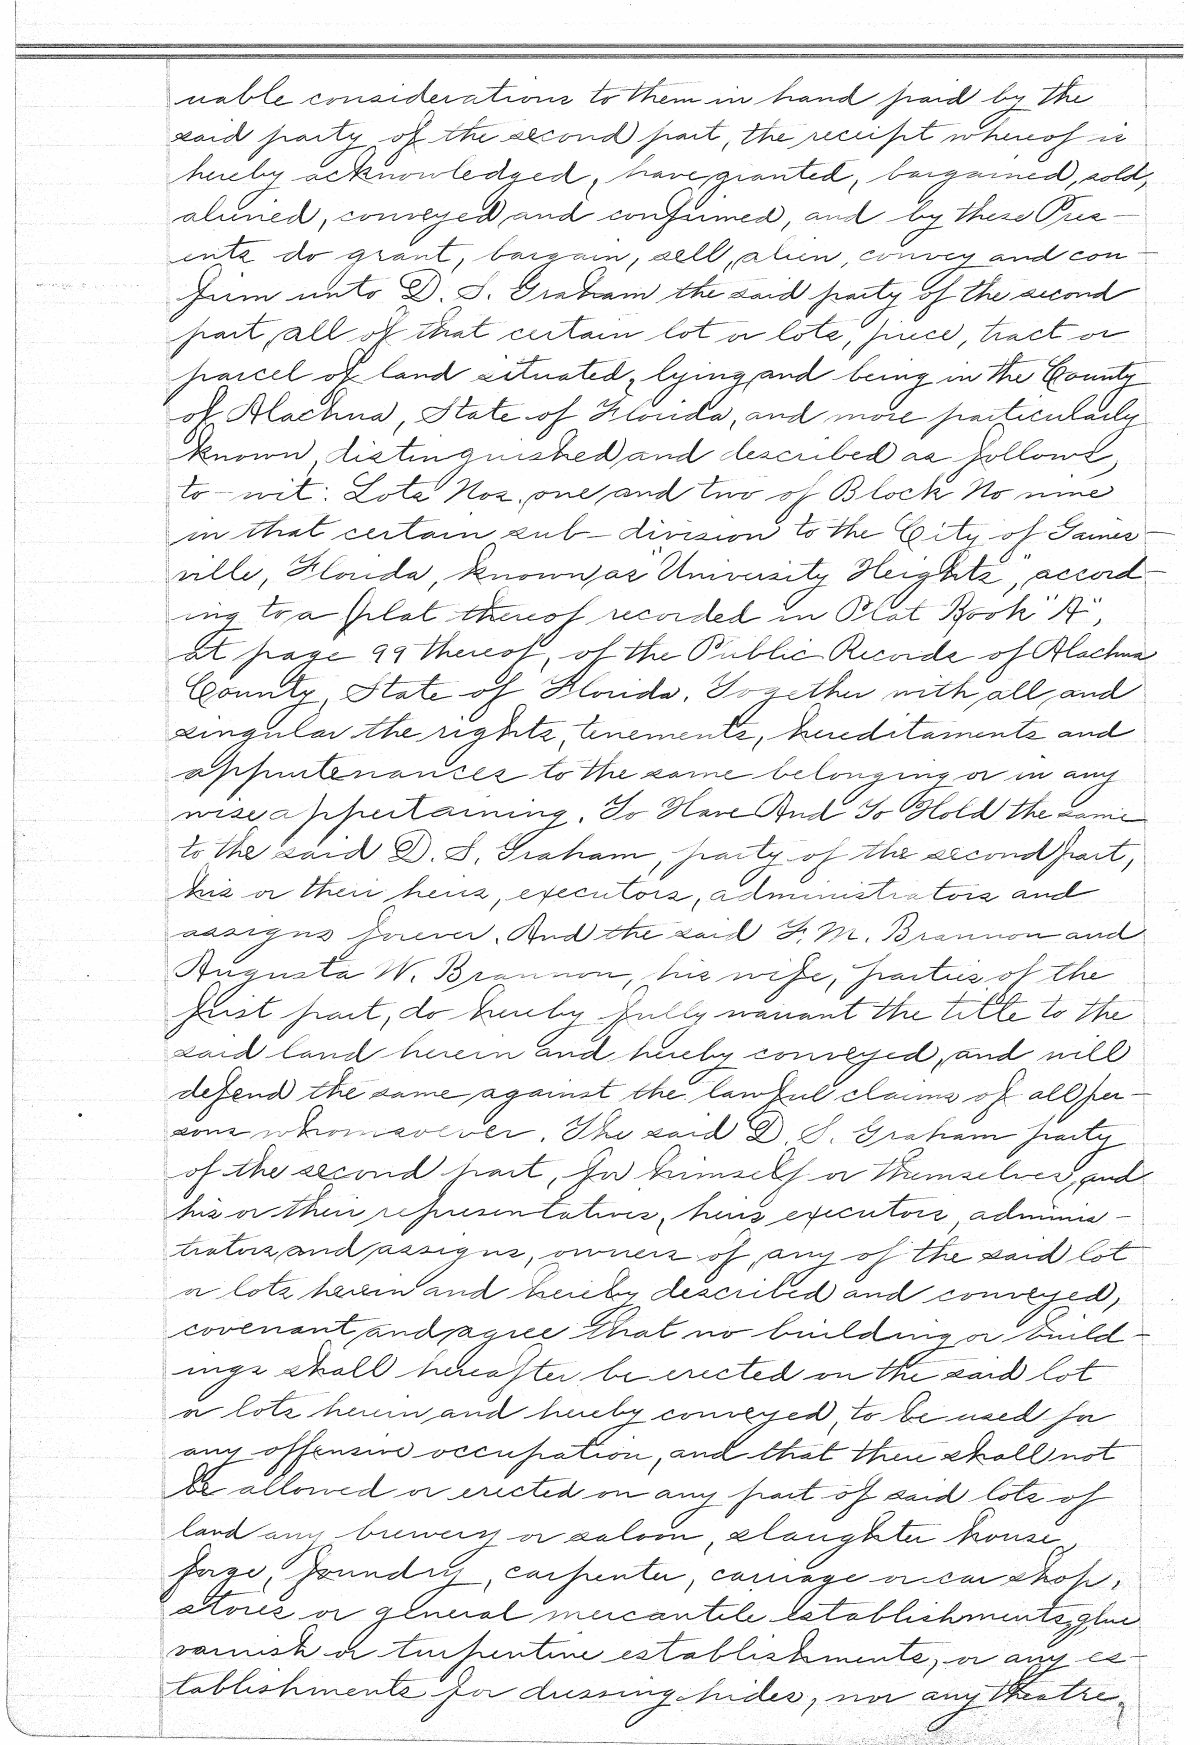 uable considerations to them in hand paid by the
said party of the second part, the receipt whereof is
hereby acknowledged, have granted, bargained, sold,
aliened, conveyed and confirmed, and by these Pres-
ents do grant, bargain, sell, alien, convey and con-
firm unto D. S. Graham the said party of the second
part, all of that certain lot or lots, piece, tract or
parcel of land situated, lying and being in the County
of Alachua, State of Florida, and more particularly
known, distinguished and described as follows,
to-wit: Lots Nos. one and two of Block No nine
in that certain sub-division to the City of Gaines-
ville, Florida, known as "University Heights", accord-
ing to a plat thereof recorded in Plat Book "A",
at page 99 thereof, of the Public Records of Alachua
County, State of Florida. Together with all and
singular the rights, tenements, hereditaments and
appurtenances to the same belonging or in any
wise appertaining. To Have And To Hold the same
to the said D. S. Graham, party of the second part,
his or their heirs, executors, administrators and
assigns forever. And the said F. M. Brannon and
Augusta W. Brannon, his wife, parties of the
first part, do hereby fully warrant the title to the
said land herein and hereby conveyed, and will
defend the same against the lawful claims of all per-
sons whomsoever. The said D. S. Graham party
of the second part, for himself or themselves, and
his or their representatives, heirs executors, adminis-
trators and assigns, owners of any of the said lot
or lots herein and hereby described and conveyed,
covenant and agree that no building or build-
ings shall hereafter be erected on the said lot
or lots herein and hereby conveyed, to be used for
any offensive occupation, and that there shall not
be allowed or erected on any part of said lots of
land any brewery or saloon, slaughter house,
forge, foundry, carpenter, carriage or car shop,
stores or general mercantile establishments, glue
varnish or turpentine establishments, or any es-
tablishments for dressing hides, nor any theatre,